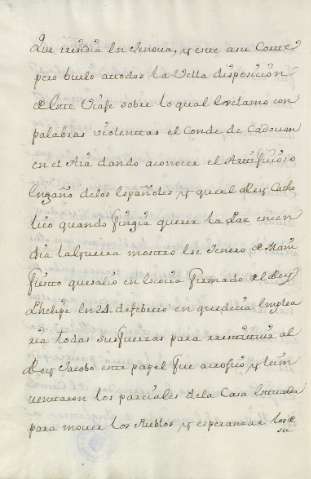 Que residia en Jenova, y este a su Corte
pero huelo a todos la Vella disposicion
de este Viaje sobre lo qual esclamo con
palabras violentas el Conde de Cadouan
en el Aia dando a conocer el Artificio, o
Engaño de los Españoles y que el Rey Catho
lico quando fingia querer la Paz encen
dia la Guerra mostro los Jenero de Mani
fiesto que salio en Escocia firmado de el Rey
Phelipe en 24 de febrero en que decia emplea
ria todas sus fuerzas para restituir al
Rey Jacobo este papel fue apocrifo y le in
ventaron los parciales de la Casa Estuarda
para mover los Pueblos, y esperanzar los de
su